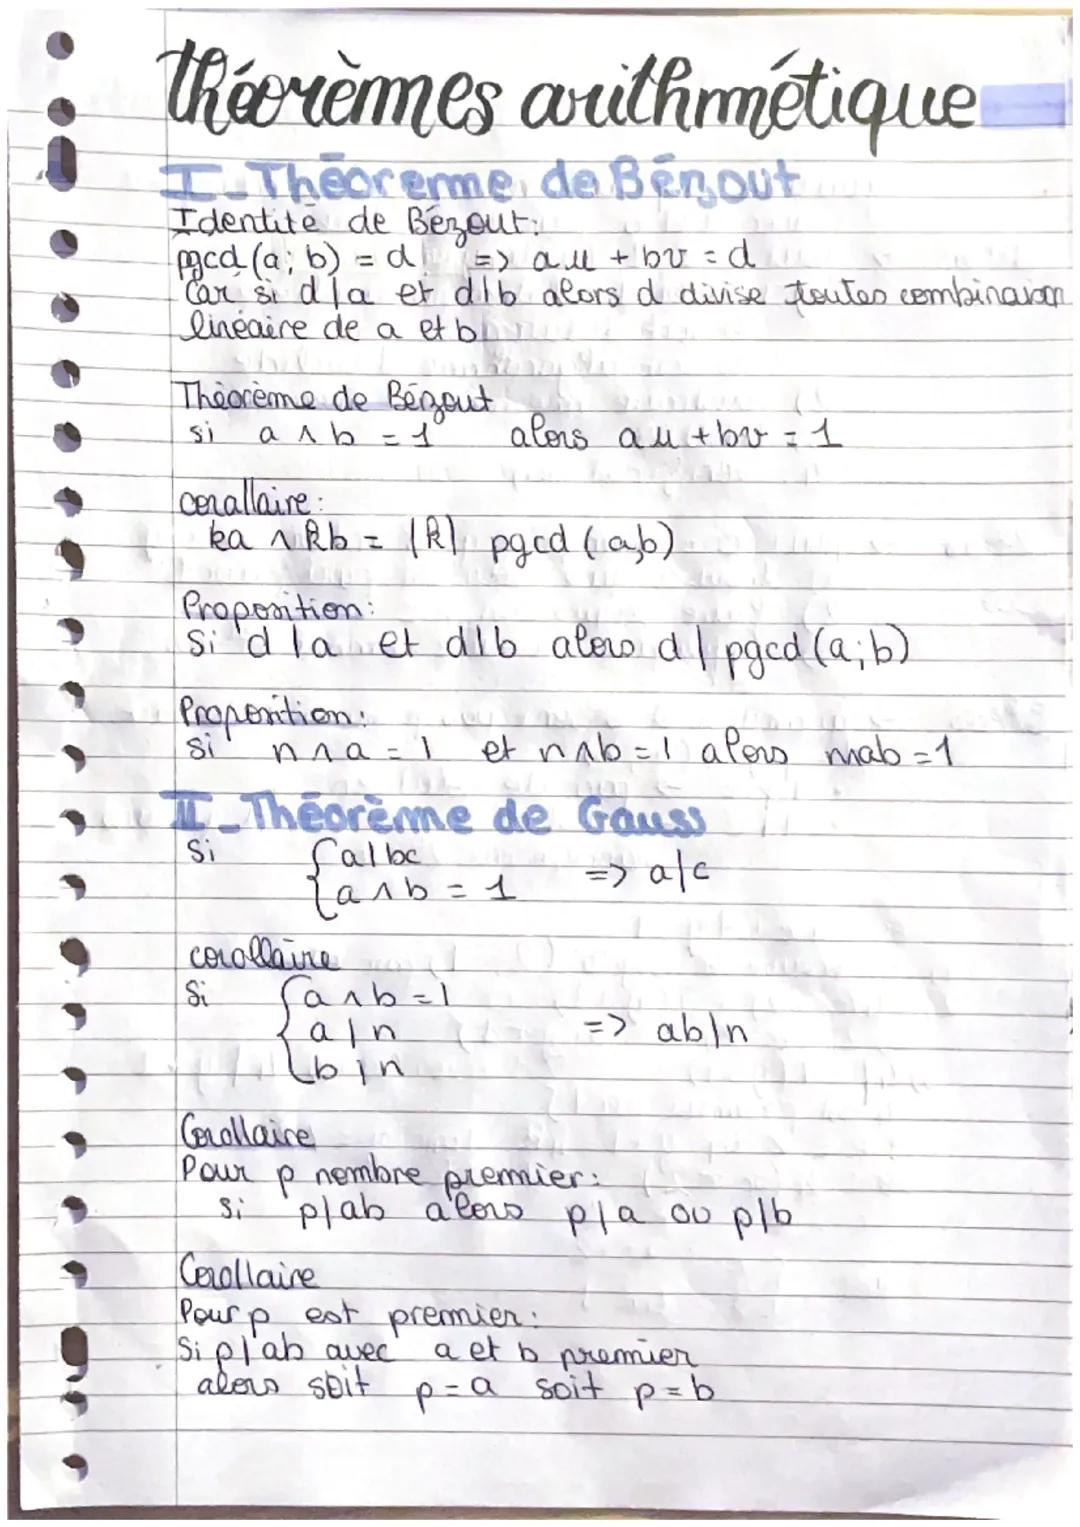 théorèmes arithmétique
I_Théoreme de Bézout
Identité de Bézout:
pgcd (a; b) = d => au + bv = d
Car si d|a et d|b alors d divise toutes combinaison
linéaire de a et b
Théorème de Bézout
si a ∧ b = 1 alors au + bv = 1
corallaire:
ka ∧ kb = |k| pgcd (a,b)
Proposition:
Si d|a et d|b alors d | pgcd (a;b)
Proposition:
si n∧a = 1 et n∧b = 1 alors n∧ab = 1
II_Théorème de Gauss
Si { a|bc
{ a∧b = 1 => a|c
corollaire
Si { a∧b = 1
{ a|n => ab|n
{ b|n
Corollaire
Pour p nombre premier:
si p|ab alors p|a ou p|b
Corollaire
Pour p est premier:
Si p|ab avec a et b premier
alors soit p = a soit p = b